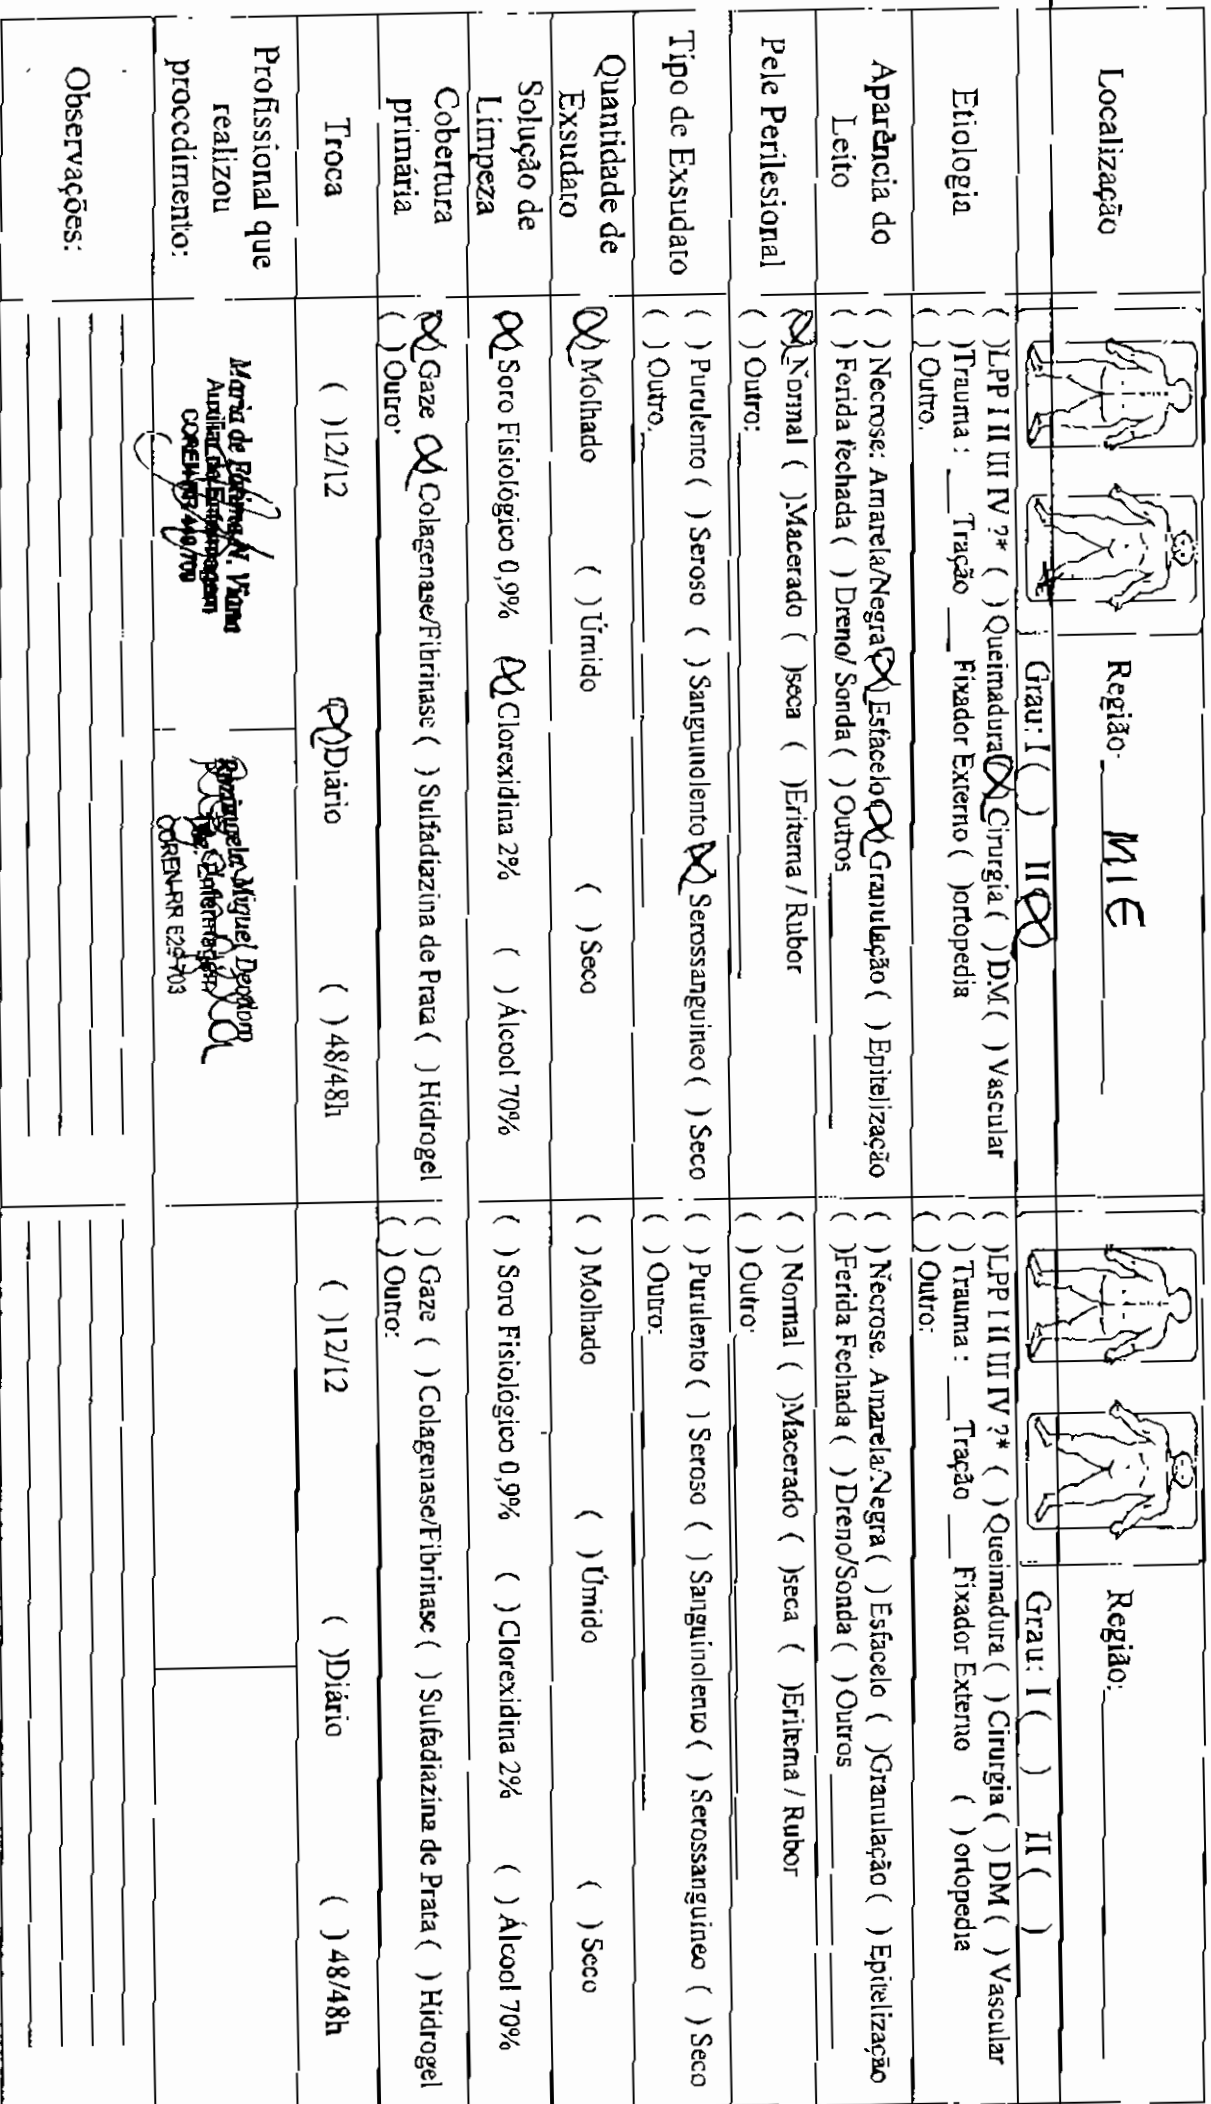 Localização
Região: MIE
Grau: I ( ) II (X)
Região:
Grau: I ( ) II ( )
Etiologia
( )LPP I II III IV ?* ( )Queimadura (X) Cirurgia ( ) DM ( ) Vascular
( )Trauma : ___ Tração ___ Fixador Externo ( )ortopedia
( ) Outro.
( )LPP I II III IV ?* ( )Queimadura ( ) Cirurgia ( ) DM ( ) Vascular
( ) Trauma : ___ Tração ___ Fixador Externo ( ) ortopedia
( ) Outro:
Aparência do
Leito
( ) Necrose: Amarela/Negra (X) Esfacelo (X) Granulação ( ) Epitelização
( ) Ferida fechada ( ) Dreno/ Sonda ( ) Outros
( ) Necrose. Amarela/Negra ( ) Esfacelo ( )Granulação ( ) Epitelização
( )Ferida Fechada ( ) Dreno/Sonda ( ) Outros
Pele Perilesional
(X) Normal ( )Macerado ( )seca ( )Eritema / Rubor
( ) Outro:
( ) Normal ( )Macerado ( )seca ( )Eritema / Rubor
( ) Outro:
Tipo de Exsudato
( ) Purulento ( ) Seroso ( ) Sanguinolento (X) Serossanguineo ( ) Seco
( ) Outro.
( ) Purulento ( ) Seroso ( ) Sanguinolento ( ) Serossanguineo ( ) Seco
( ) Outro:
Quantidade de
Exsudato
(X) Molhado ( ) Úmido ( ) Seco
( ) Molhado ( ) Úmido ( ) Seco
Solução de
Limpeza
(X) Soro Fisiológico 0,9% (X) Clorexidina 2% ( ) Álcool 70%
( ) Soro Fisiológico 0,9% ( ) Clorexidina 2% ( ) Álcool 70%
Cobertura
primária
(X) Gaze (X) Colagenase/Fibrinase ( ) Sulfadiazina de Prata ( ) Hidrogel
( ) Outro:
( ) Gaze ( ) Colagenase/Fibrinase ( ) Sulfadiazina de Prata ( ) Hidrogel
( ) Outro:
Troca
( )12/12 (X)Diário ( ) 48/48h
( )12/12 ( )Diário ( ) 48/48h
Profissional que
realizou
procedimento:
Maria de Fátima N. Viana
Auxiliar de Enfermagem
COREN-RR
Miguel
Enfermagem
COREN-RR
Observações: